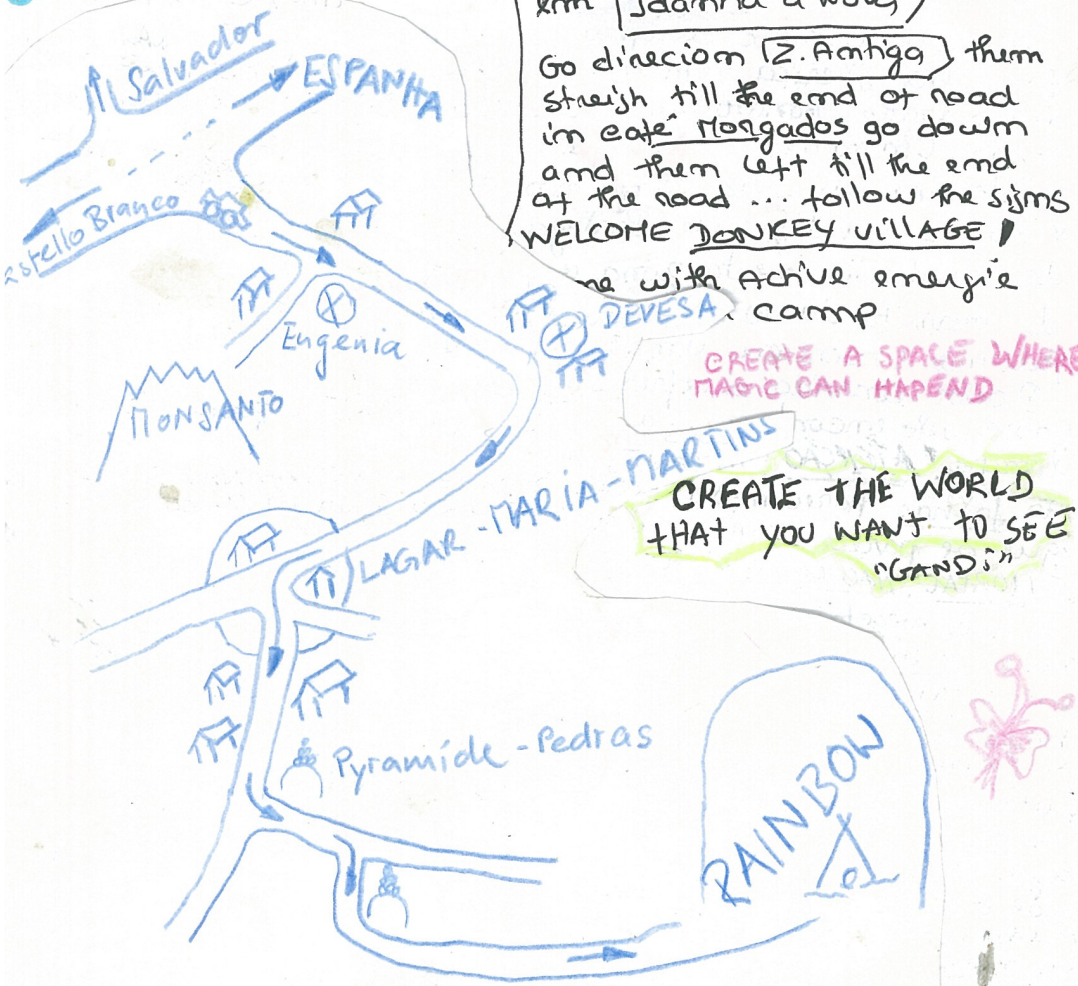 Salvador
ESPANHA
stello Branco
Eugenia
MONSANTO
DEVESA
LAGAR-MARIA-MARTINS
Pyramide-Pedras
RAINBOW
Go direciom Z. Amtiga them
streigh till the emd of road
im cafe Morgados go dowm
amd them left till the emd
of the road ... follow the sigms
WELCOME DONKEY VILLAGE!
me with Active emergie
camp
CREATE A SPACE WHERE
MAGIC CAN HAPEND
CREATE THE WORLD
tHAt YOU WANT tO SEE
"GANDi"